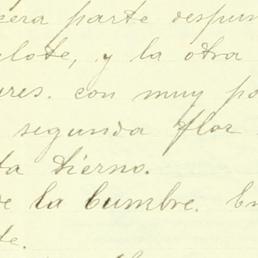 cera parte despun
elote, y la otra
ures. con muy po
segunda flor
ta tierno.
de la cumbre. En
te.